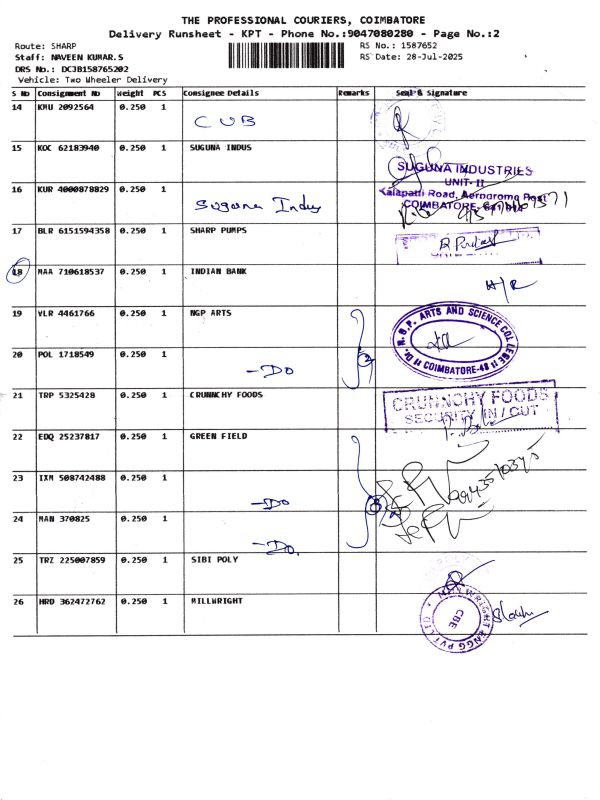 THE PROFESSIONAL COURIERS, COIMBATORE
Delivery Runsheet - KPT - Phone No.:9047080280 - Page No.:2
Route: SHARP RS No.: 1587652
Staff: NAVEEN KUMAR.S RS Date: 28-Jul-2025
DRS No.: DCJB158765202
Vehicle: Two Wheeler Delivery
S No Consignment No Weight PCS Consignee Details Remarks Seal & Signature
14 KMU 2092564 0.250 1
CUB
15 KOC 62183940 0.250 1 SUGUNA INDUS
SUGUNA INDUSTRIES
UNIT-II
Kalapatti Road, Aerodrome Post
COIMBATORE-641 014
16 KUR 4000878829 0.250 1
Suguna Indus
17 BLR 6151594358 0.250 1 SHARP PUMPS
18 MAA 710618537 0.250 1 INDIAN BANK
A/R
19 VLR 4461766 0.250 1 NGP ARTS
Dr. N.G.P. ARTS AND SCIENCE COLLEGE
COIMBATORE-48
20 POL 1718549 0.250 1
-Do
2
21 TRP 5325428 0.250 1 CRUNNCHY FOODS
CRUNNCHY FOODS
SECURITY IN / OUT
22 EDQ 25237817 0.250 1 GREEN FIELD
23 IXM 508742488 0.250 1
-Do
3
24 MAN 370825 0.250 1
-Do
25 TRZ 225007859 0.250 1 SIBI POLY
26 HRD 362472762 0.250 1 MILLWRIGHT
MILLWRIGHT ENGG PVT LTD
CBE